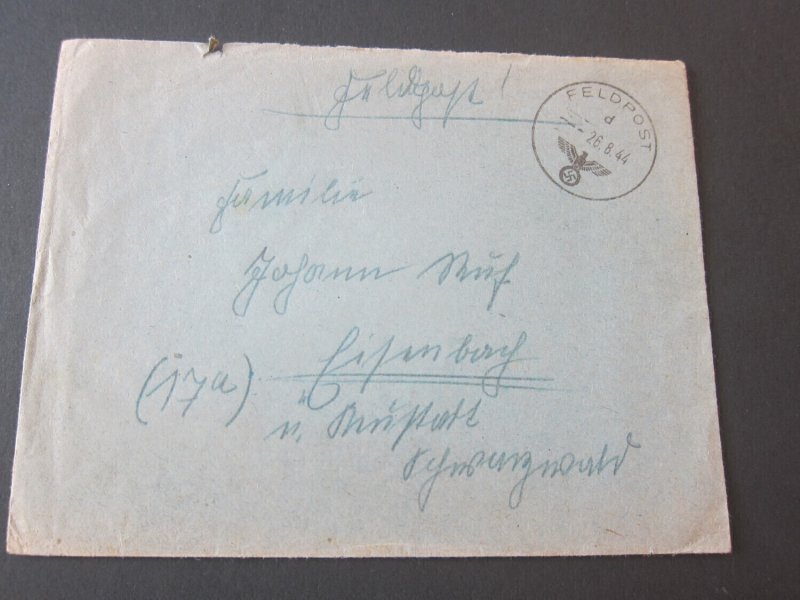 Feldpost!
FELDPOST
d
26.8.44
Familie
Johann Ruf
(17a) Eisenbach
ü. Neustadt
Schwarzwald